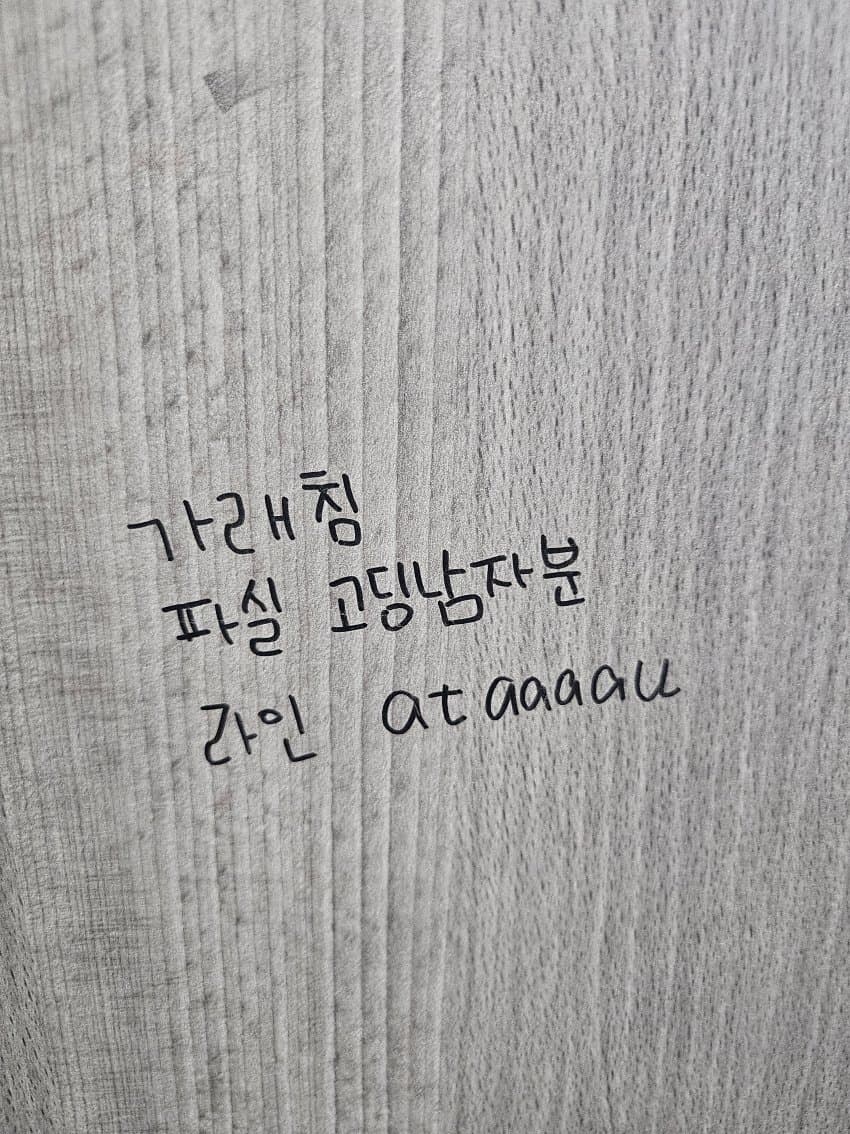 가래침
파실 고딩남자분
라인 ataaaau